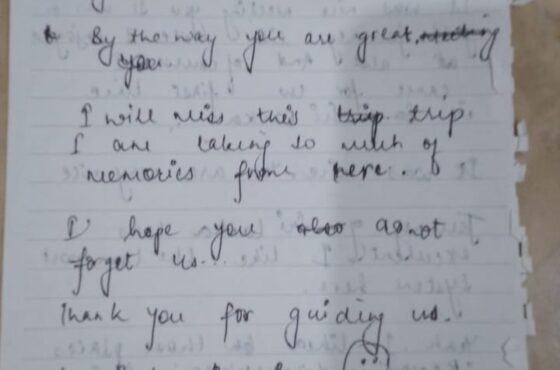 By the way you are great,
you
I will miss this trip trip
I am taking so much of
memories from here.
I hope you also do not
forget us.
Thank you for guiding us.